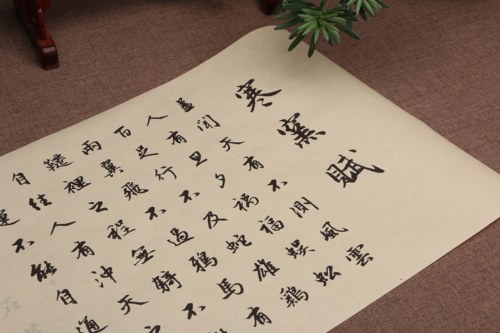 寒窯賦
蓋聞天有不測風雲
人有旦夕禍福蜈蚣
百足行不及蛇雄雞
兩翼飛不過鴉馬有
韆裡之程無騎不
自往人有沖天
運不能自通